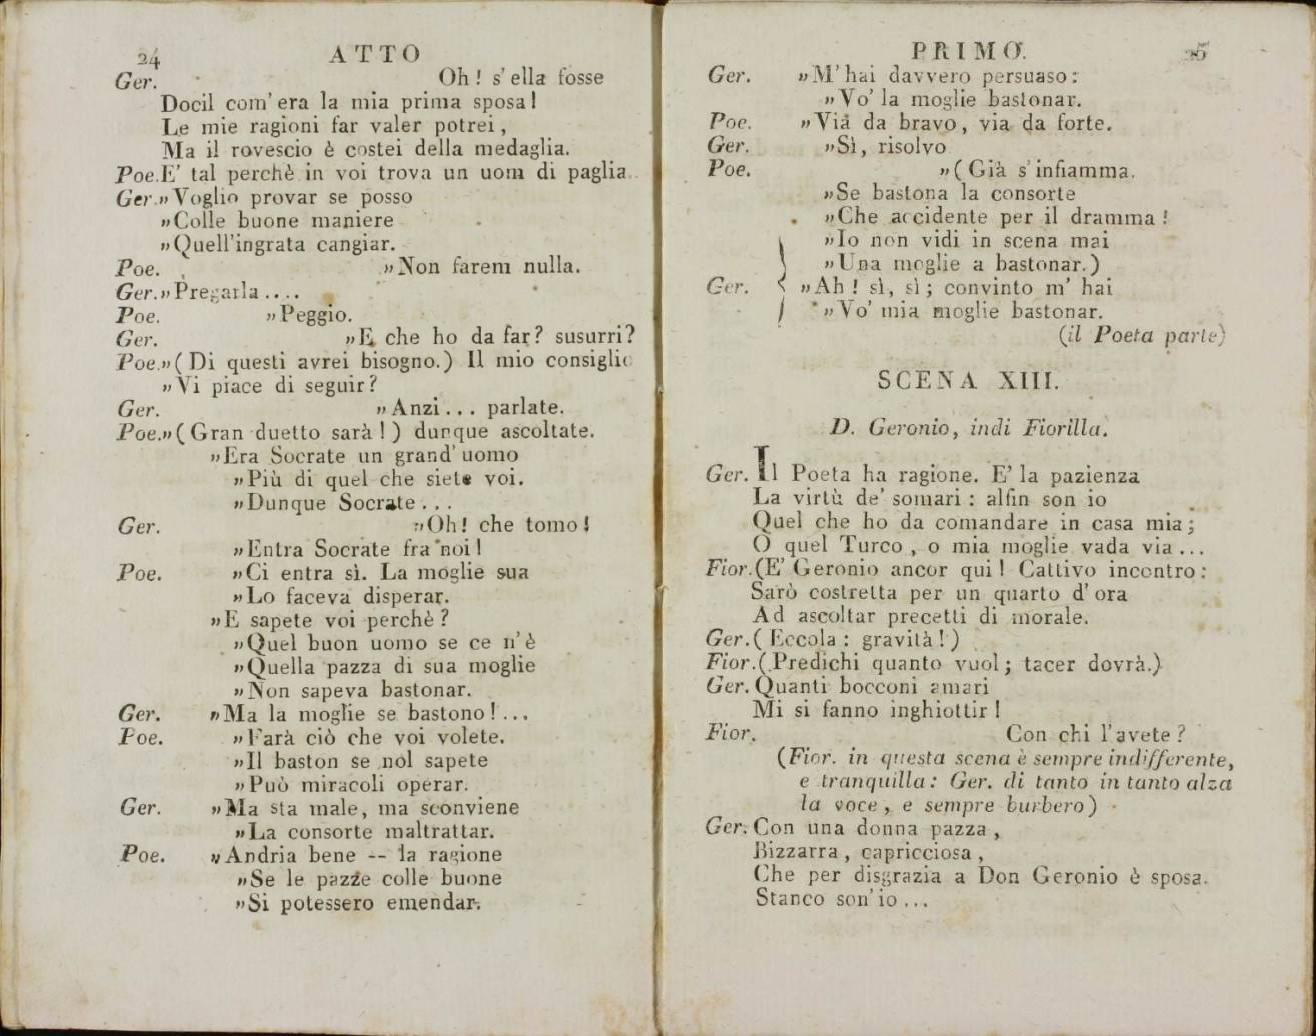 24 ATTO
Ger. Oh! s'ella fosse
Docil com'era la mia prima sposa!
Le mie ragioni far valer potrei,
Ma il rovescio è costei della medaglia.
Poe. E' tal perchè in voi trova un uom di paglia.
Ger. „Voglio provar se posso
„Colle buone maniere
„Quell'ingrata cangiar.
Poe. „Non farem nulla.
Ger. „Pregarla....
Poe. „Peggio.
Ger. „E che ho da far? susurri?
Poe. „(Di questi avrei bisogno.) Il mio consiglio
„Vi piace di seguir?
Ger. „Anzi... parlate.
Poe. „(Gran duetto sarà!) dunque ascoltate.
„Era Socrate un grand'uomo
„Più di quel che siete voi.
„Dunque Socrate...
Ger. „Oh! che tomo!
„Entra Socrate fra noi!
Poe. „Ci entra sì. La moglie sua
„Lo faceva disperar.
„E sapete voi perchè?
„Quel buon uomo se ce n'è
„Quella pazza di sua moglie
„Non sapeva bastonar.
Ger. „Ma la moglie se bastono!...
Poe. „Farà ciò che voi volete.
„Il baston se nol sapete
„Può miracoli operar.
Ger. „Ma sta male, ma sconviene
„La consorte maltrattar.
Poe. „Andria bene -- la ragione
„Se le pazze colle buone
„Si potessero emendar.
PRIMO. 25
Ger. „M'hai davvero persuaso:
„Vo' la moglie bastonar.
Poe. „Via da bravo, via da forte.
Ger. „Sì, risolvo
Poe. „(Già s'infiamma.
„Se bastona la consorte
„Che accidente per il dramma!
„Io non vidi in scena mai
„Una moglie a bastonar.)
Ger. „Ah! sì, sì; convinto m'hai
„Vo' mia moglie bastonar.
(il Poeta parte)
SCENA XIII.
D. Geronio, indi Fiorilla.
Ger. Il Poeta ha ragione. E' la pazienza
La virtù de' somari: alfin son io
Quel che ho da comandare in casa mia;
O quel Turco, o mia moglie vada via...
Fior. (E' Geronio ancor qui! Cattivo incontro:
Sarò costretta per un quarto d'ora
Ad ascoltar precetti di morale.
Ger. (Eccola: gravità!)
Fior. (Predichi quanto vuol; tacer dovrà.)
Ger. Quanti bocconi amari
Mi si fanno inghiottir!
Fior. Con chi l'avete?
(Fior. in questa scena è sempre indifferente,
e tranquilla: Ger. di tanto in tanto alza
la voce, e sempre burbero)
Ger. Con una donna pazza,
Bizzarra, capricciosa,
Che per disgrazia a Don Geronio è sposa.
Stanco son'io...